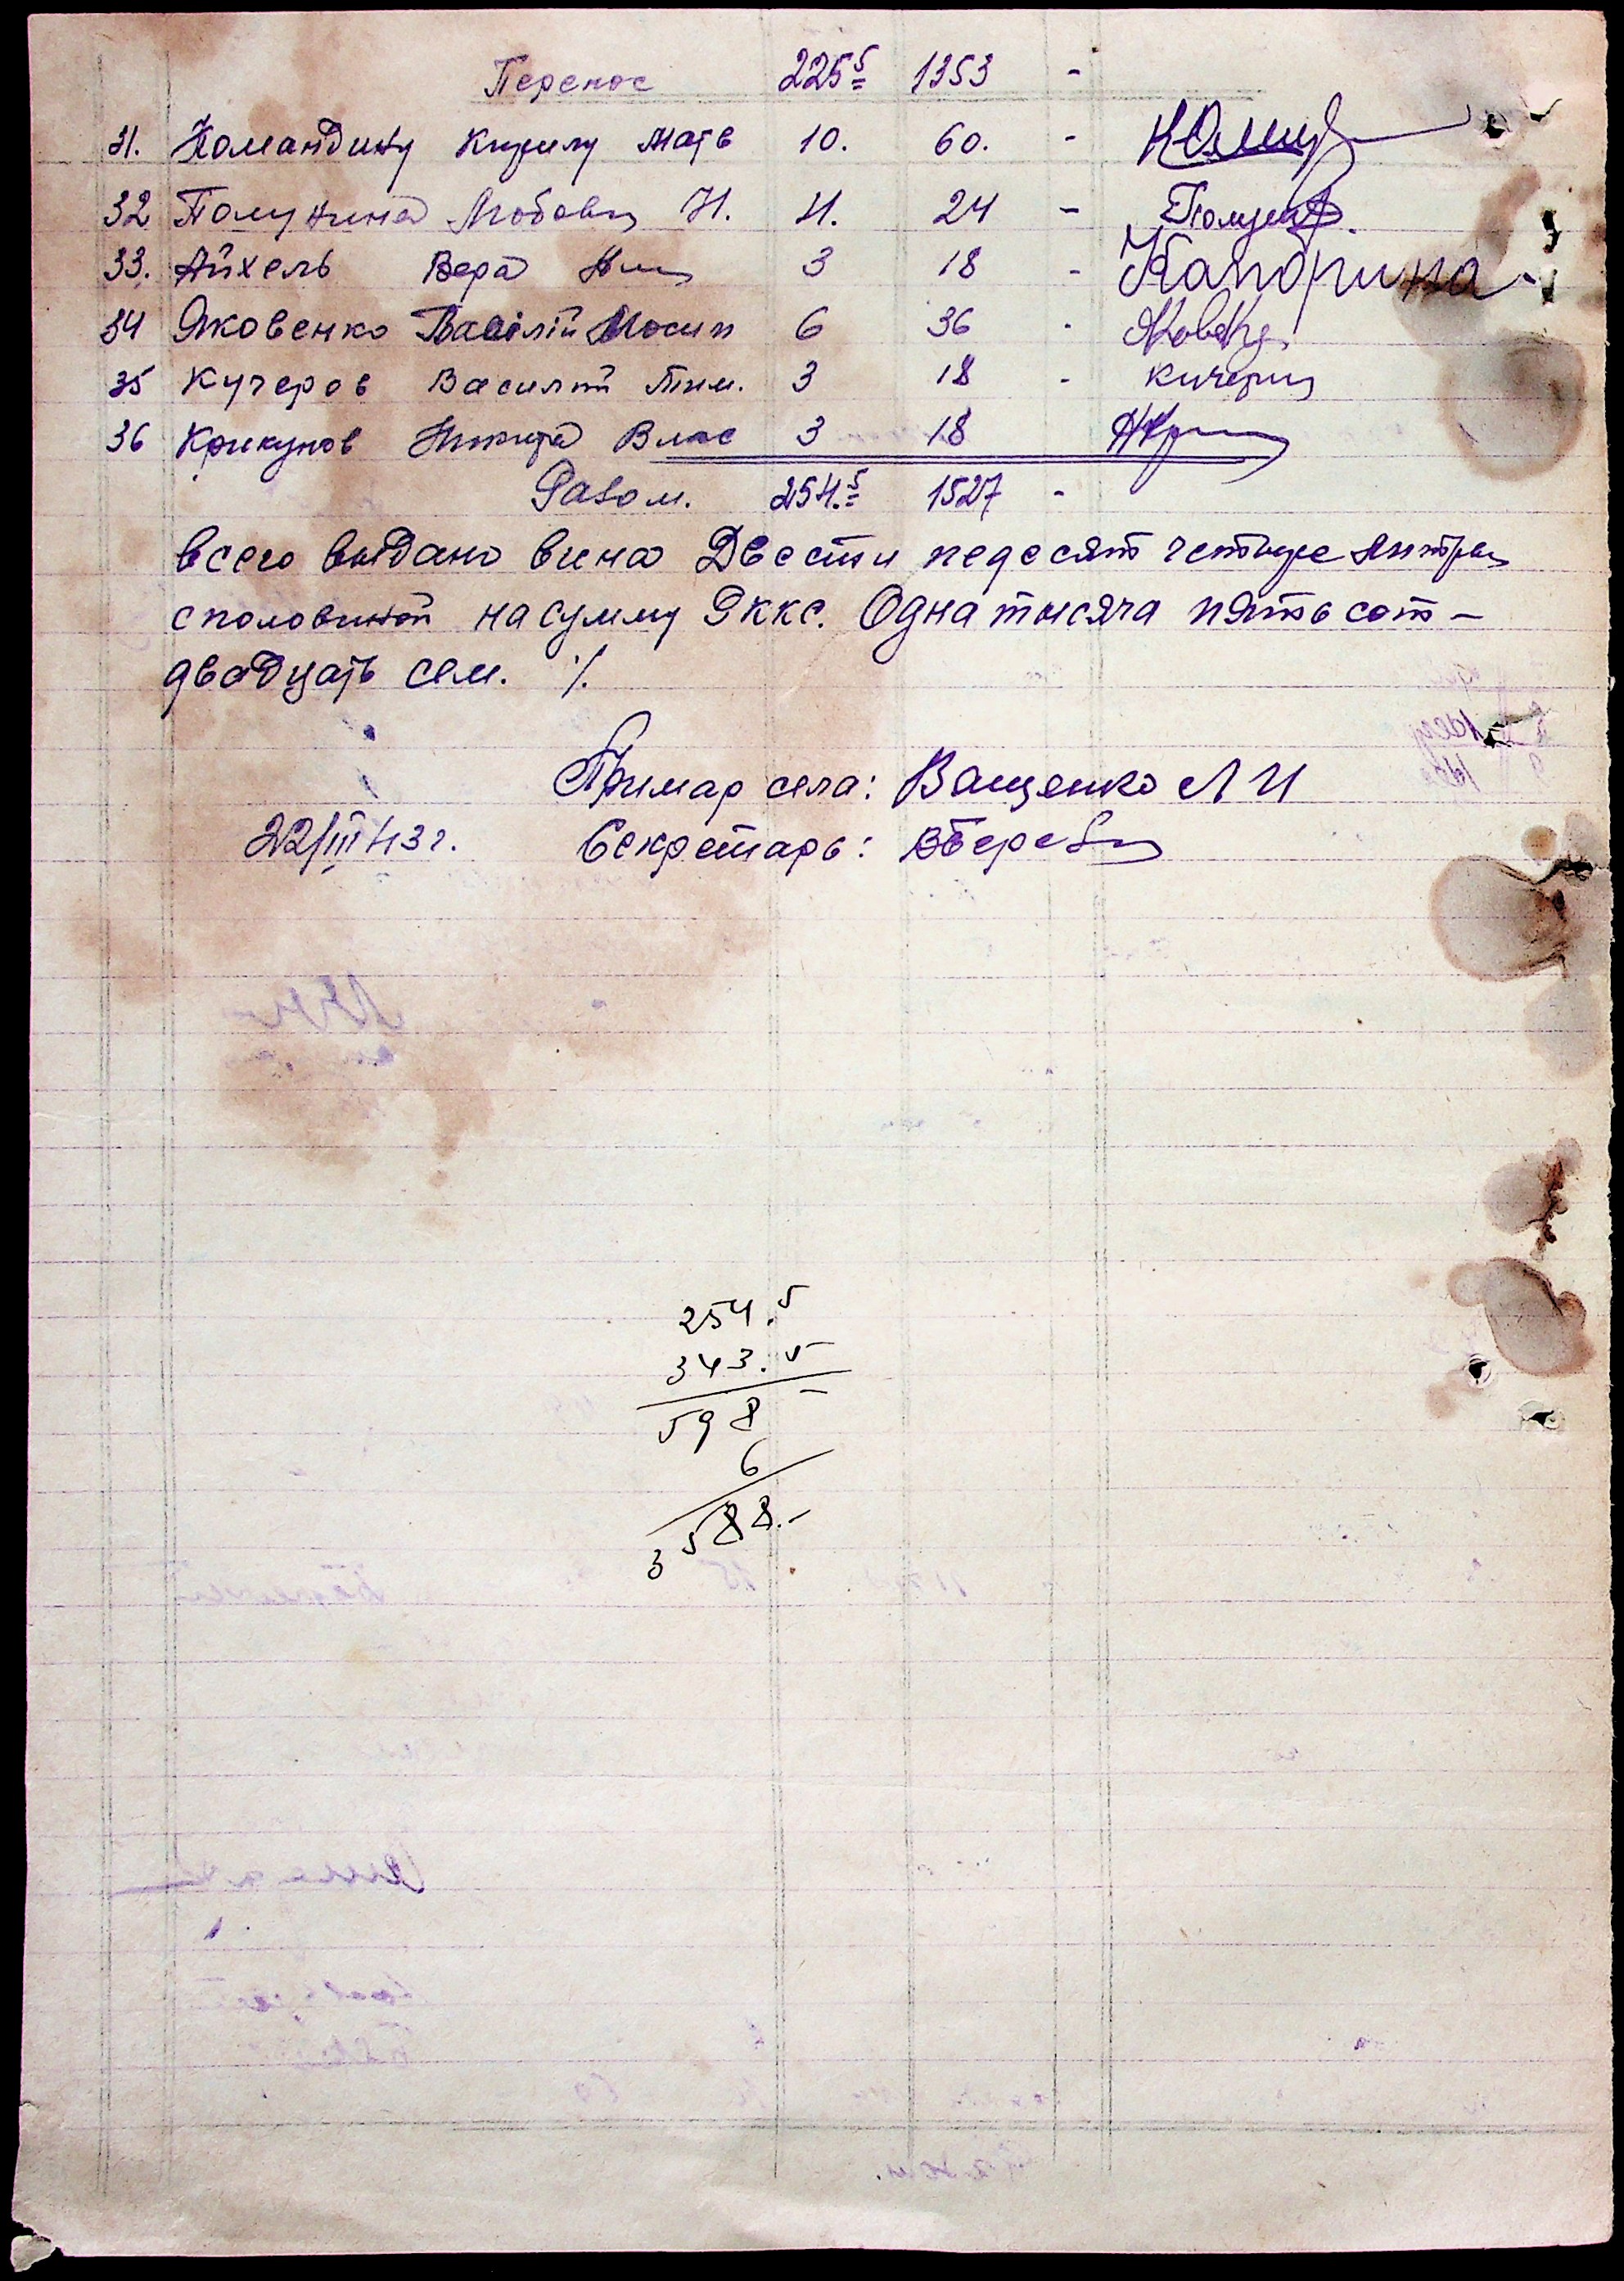 Перенос 225⁵ 1353 -
31. Командину Кирилу Матв 10. 60. -
32 Полунина Любовь И. 4. 24 - Полунин.
33. Айхель Вера 3 18 - Капорина
34 Яковенко Васілій Иосип 6 36 -
35 Кучеров Василий Тим. 3 18 - Кучеров
36 Крикунов Никита Влас 3 18
Разом. 254.⁵ 1527 -
всего выдано вина Двести педесят четыре литры
споловиной на сумму Рккс. Одна тысяча пятьсот -
двадцать сем. ·/.
Примар села: Ващенко Л И
22/III 43 г. Секретарь:
254.5
343.5
598 -
6
3588.-